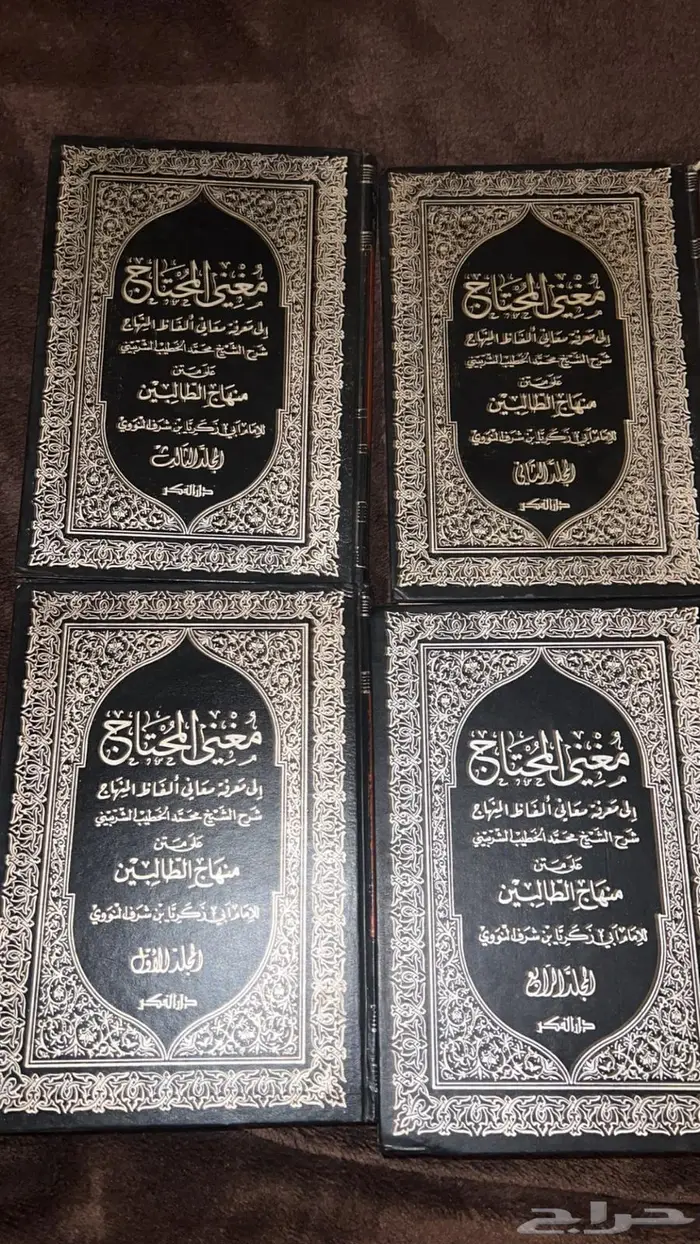 مُغْنِي المُحْتَاج
إلى معرفة معاني ألفاظ المنهاج
شرح الشيخ محمد الخطيب الشربيني
على متن
منهاج الطالبين
للإمام أبي زكريا بن شرف النووي
المجلد الثالث
دار الفكر
مُغْنِي المُحْتَاج
إلى معرفة معاني ألفاظ المنهاج
شرح الشيخ محمد الخطيب الشربيني
على متن
منهاج الطالبين
للإمام أبي زكريا بن شرف النووي
المجلد الثاني
دار الفكر
مُغْنِي المُحْتَاج
إلى معرفة معاني ألفاظ المنهاج
شرح الشيخ محمد الخطيب الشربيني
على متن
منهاج الطالبين
للإمام أبي زكريا بن شرف النووي
المجلد الأول
دار الفكر
مُغْنِي المُحْتَاج
إلى معرفة معاني ألفاظ المنهاج
شرح الشيخ محمد الخطيب الشربيني
على متن
منهاج الطالبين
للإمام أبي زكريا بن شرف النووي
المجلد الرابع
دار الفكر
حراج